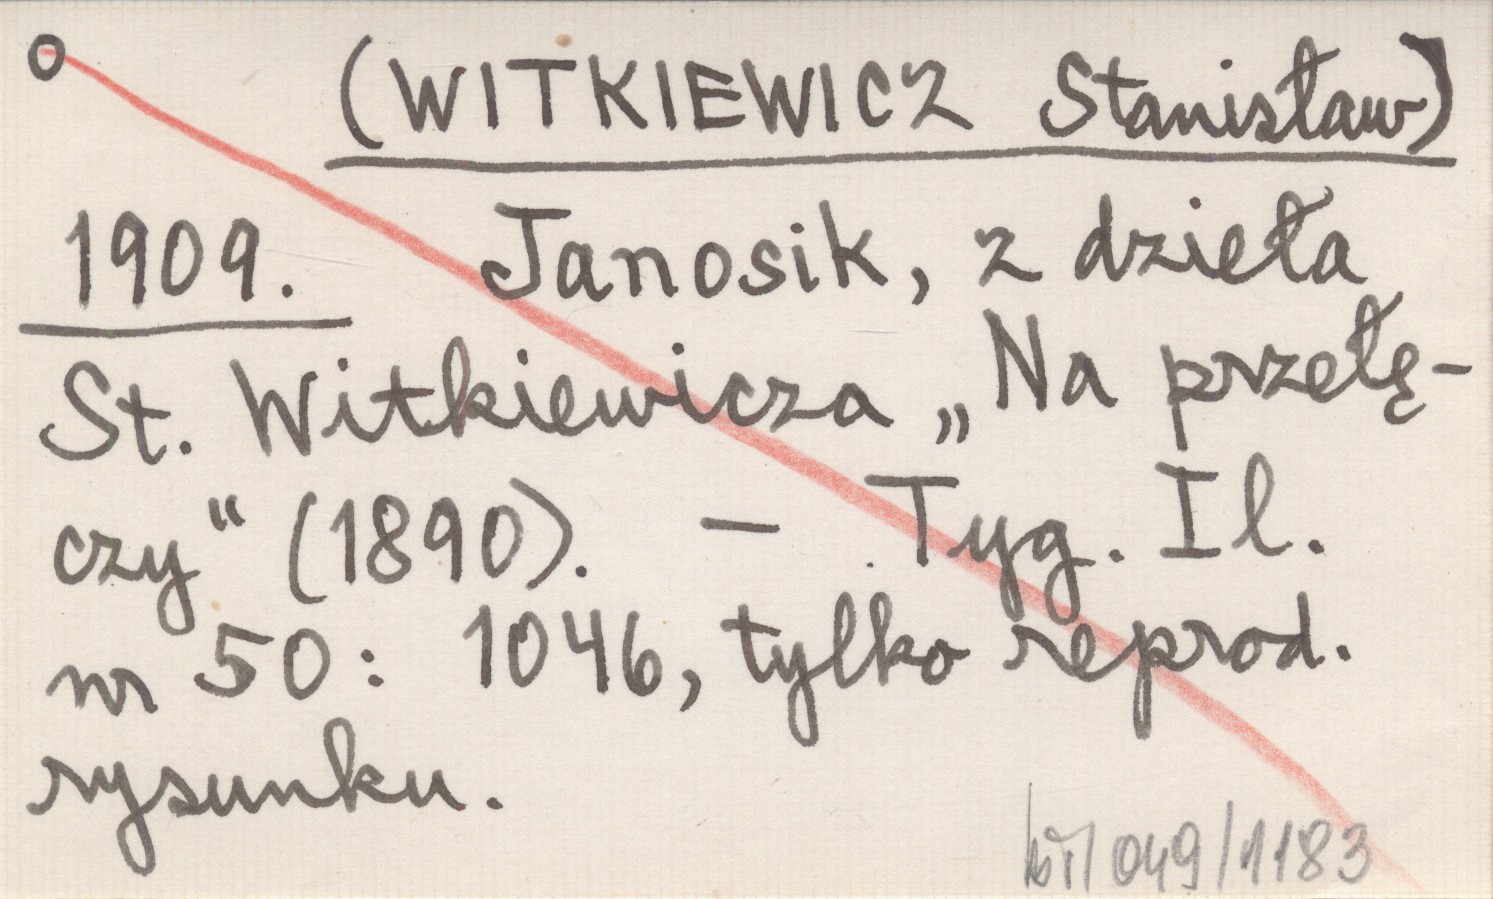 o (WITKIEWICZ Stanisław)
1909. Janosik, z dzieła
St. Witkiewicza „Na przełę-
czy" (1890). – Tyg. Il.
nr 50: 1046, tylko reprod.
rysunku.
049/1183